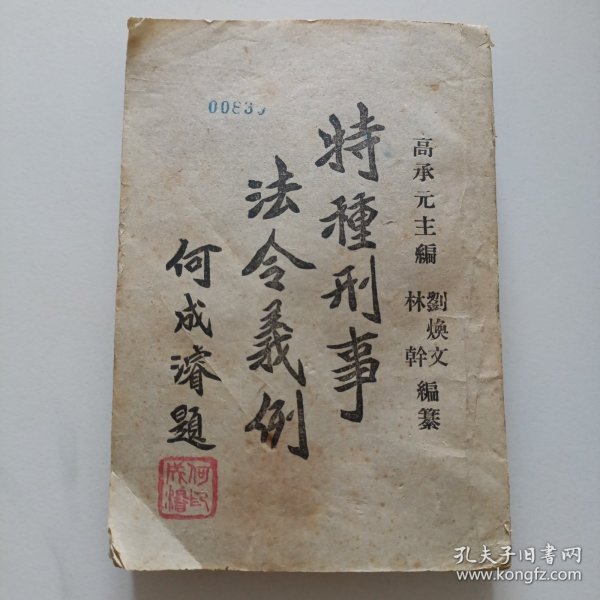 高承元主編
劉煥文
林幹
編纂
特種刑事
法令義例
何成濬題
何印
成濬
孔夫子旧書网
www.kongfz.com